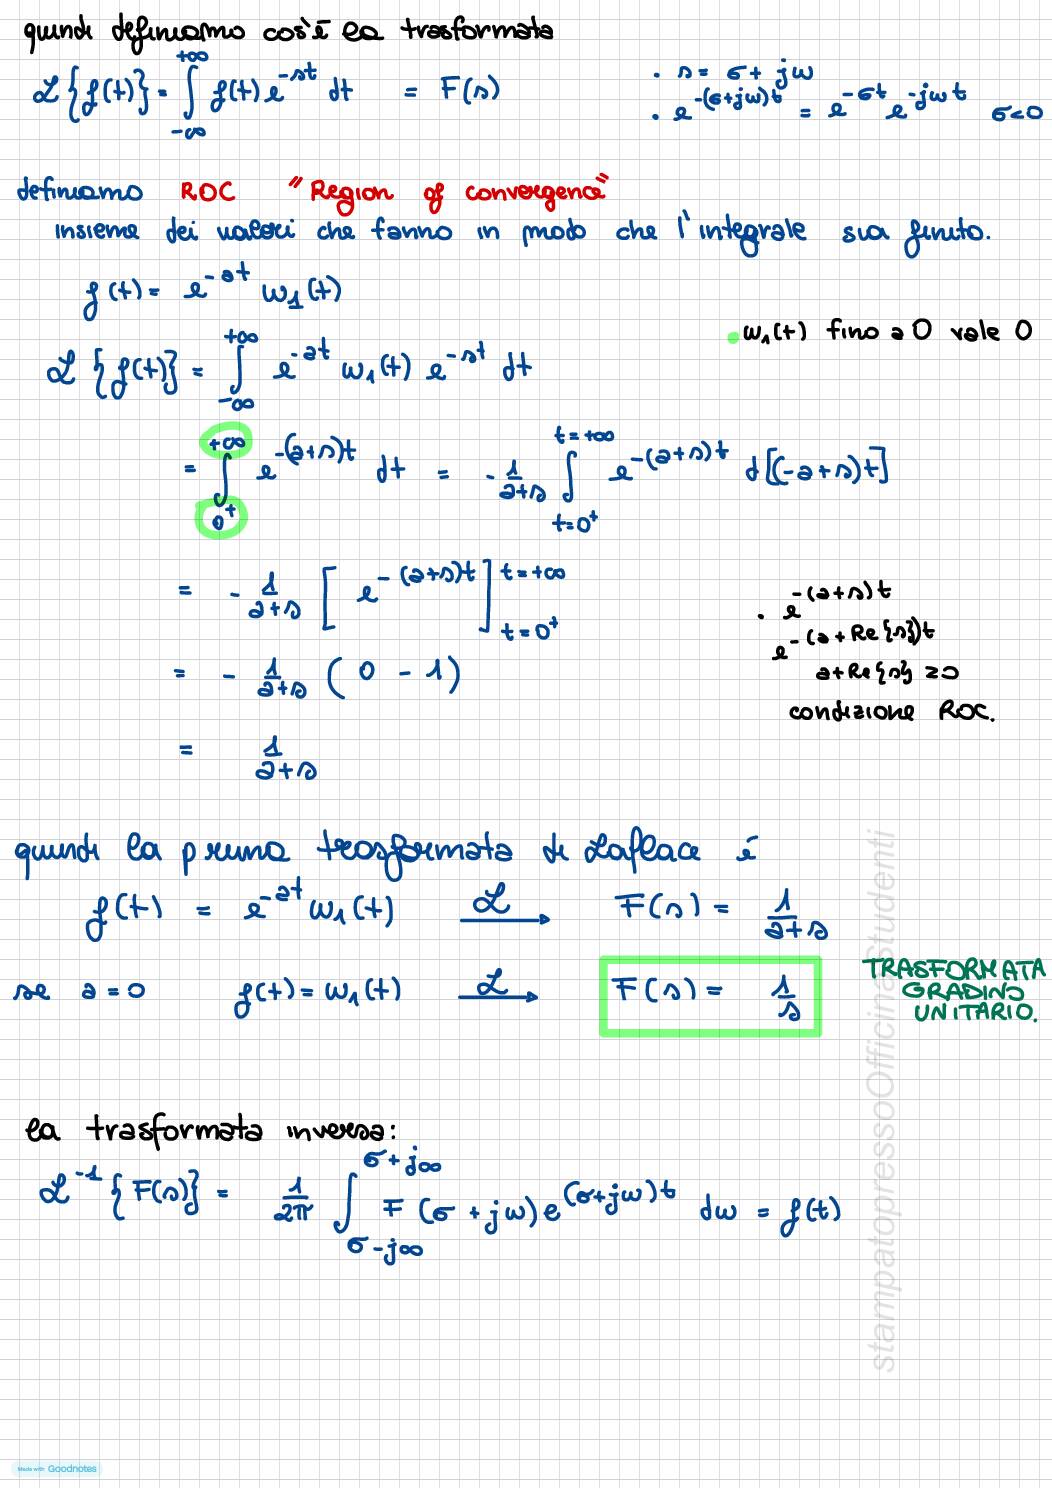 quindi definiamo cos'è la trasformata
ℒ{f(t)} = ∫_{-∞}^{+∞} f(t) e^{-st} dt = F(s)
• s = σ + jω
• e^{-(σ+jω)t} = e^{-σt} e^{-jωt} σ<0
definiamo ROC "Region of convergence"
insieme dei valori che fanno in modo che l'integrale sia finito.
f(t) = e^{-at} w₁(t)
• w₁(t) fino a 0 vale 0
ℒ{f(t)} = ∫_{-∞}^{+∞} e^{-at} w₁(t) e^{-st} dt
= ∫_{0⁺}^{+∞} e^{-(a+s)t} dt = -1/(a+s) ∫_{t=0⁺}^{t=+∞} e^{-(a+s)t} d[(-a+s)t]
= -1/(a+s) [e^{-(a+s)t}]_{t=0⁺}^{t=+∞}
• e^{-(a+s)t}
e^{-(a+Re{s})t}
= -1/(a+s) (0 - 1)
a+Re{s} ≥0
condizione ROC.
= 1/(a+s)
quindi la prima trasformata di Laplace é
f(t) = e^{-at} w₁(t) —ℒ→ F(s) = 1/(a+s)
se a=0 f(t) = w₁(t) —ℒ→ F(s) = 1/s
TRASFORMATA
GRADINO
UNITARIO.
la trasformata inversa:
ℒ^{-1}{F(s)} = 1/2π ∫_{σ-j∞}^{σ+j∞} F(σ+jω) e^{(σ+jω)t} dω = f(t)
stampatopressoOfficinaStudenti
Made with Goodnotes